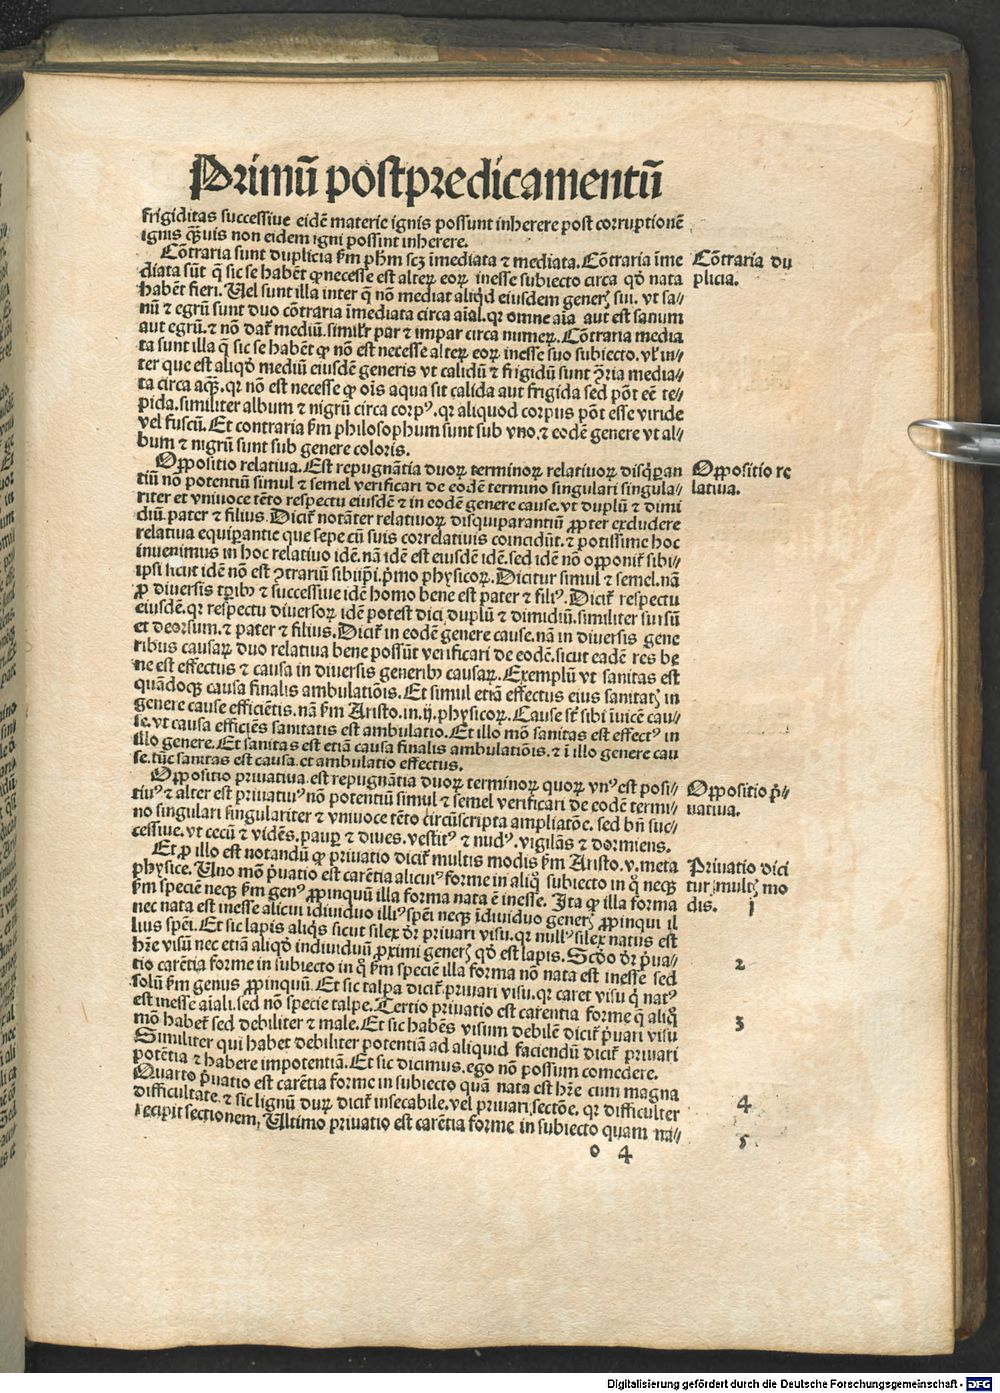 Primū postpredicamentū
frigiditas successiue eidē materie ignis possunt inherere post corruptionē
ignis q̄ꝫuis non eidem igni possint inherere.
Cōtraria sunt duplicia ẜm pħm scꝫ īmediata ⁊ mediata. Cōtraria īme
diata sūt q̄ sic se habēt ꝙ necesse est alterꝝ eorꝝ inesse subiecto circa qđ nata
habēt fieri. Uel sunt illa inter q̄ nō mediat aliqđ eiusdem generꝭ sui. vt sa⸗
nū ⁊ egrū sunt duo cōtraria īmediata circa aīal. qꝛ omne aīa aut est sanum
aut egrū. ⁊ nō dat̄ mediū. similr̄ par ⁊ impar circa numerꝝ. Cōtraria media
ta sunt illa q̄ sic se habēt ꝙ nō est necesse alterꝝ eorꝝ inesse suo subiecto. vl̄ in⸗
ter que est aliqđ mediū eiusdē generis vt calidū ⁊ frigidū sunt ꝯ̄ria media⸗
ta circa aquā. qꝛ nō est necesse ꝙ oīs aqua sit calida aut frigida sed pōt eē te⸗
pida. similiter album ⁊ nigrū circa corpꝰ. qꝛ aliquod corpus pōt esse viride
vel fuscū. Et contraria ẜm philosophum sunt sub vno. ⁊ eodē genere vt al⸗
bum ⁊ nigrū sunt sub genere coloris.
Oppositio relatiua. Est repugnātia duorꝝ terminorꝝ relatiuorꝝ disq̇ꝑan
tiū nō potentiū simul ⁊ semel verificari de eodē termino singulari singula⸗
riter et vniuoce tēto respectu eiusdē ⁊ in eodē genere cause. vt duplū ⁊ dimi
diū. pater ⁊ filius. Dicit̄ notāter relatiuorꝝ disquiparantiū ꝓpter excludere
relatiua equiꝑantie que sepe cū suis correlatiuis coincidūt. ⁊ potissime hoc
inuenimus in hoc relatiuo idē. nā idē est eiusdē idē. sed idē nō opponit̄ sibi⸗
ipsi sicut idē nō est ꝯtrariū sibiip̄i. p̄mo physicorꝝ. Dicitur simul ⁊ semel. nā
ꝓ diuersis tꝑibꝰ ⁊ successiue idē homo bene est pater ⁊ filiꝰ. Dicit̄ respectu
eiusdē. qꝛ respectu diuersorꝝ idē potest dici duplū ⁊ dimidiū. similiter sursū
et deorsum. ⁊ pater ⁊ filius. Dicit̄ in eodē genere cause. nā in diuersis gene
ribus causarꝝ duo relatiua bene possūt verificari de eodē. sicut eadē res be
ne est effectus ⁊ causa in diuersis generibꝰ causarꝝ. Exemplū vt sanitas est
quādoqꝫ causa finalis ambulatiōis. Et simul etiā effectus eius sanitatꝭ in
genere cause efficiētis. nā ẜm Aristo. in. ij. physicorꝝ. Cause st̄ sibi īuicē cau⸗
se. vt causa efficiēs sanitatis est ambulatio. Et illo mō sanitas est effectꝰ in
illo genere. Et sanitas est etiā causa finalis ambulatiōis. ⁊ ī illo genere cau
se. tūc sanitas est causa. et ambulatio effectus.
Oppositio priuatiua. est repugnātia duorꝝ terminorꝝ quorꝝ vnꝰ est posi⸗
tiuꝰ ⁊ alter est priuatiuꝰ nō potentiū simul ⁊ semel verificari de eodē termi⸗
no singulari singulariter ⁊ vniuoce tēto circūscripta ampliatōe. sed bn̄ suc⸗
cessiue. vt cecū ⁊ vidēs. pauꝑ ⁊ diues. vestitꝰ ⁊ nudꝰ. vigilās ⁊ dormiens.
Et ꝓ illo est notandū ꝙ priuatio dicit̄ multis modis ẜm Aristo. v. meta
physice. Uno mō p̄uatio est carētia alicuiꝰ forme in aliq̊ subiecto in q̊ neqꝫ
ẜm speciē neqꝫ ẜm genꝰ ꝓpinquū illa forma nata ē inesse. Ita ꝙ illa forma
nec nata est inesse alicui īdiuiduo illiꝰ spēi neqꝫ īdiuiduo generꝭ ꝓpinqui il
lius spēi. Et sic lapis aliqs̄ sicut silex dr̄ priuari visu. qꝛ nullꝰ silex natus est
hr̄e visū nec etiā aliqđ indiuiduū ꝓximi generꝭ qđ est lapis. Scđo dr̄ p̄ua⸗
tio carētia forme in subiecto in q̊ ẜm speciē illa forma nō nata est inesse sed
solū ẜm genus ꝓpinquū. Et sic talpa dicit̄ priuari visu. qꝛ caret visu q̄ natꝰ
est inesse aīali. sed nō specie talpe. Tertio priuatio est carentia forme q̄ aliq̊
mō habet̄ sed debiliter ⁊ male. Et sic habēs visum debilē dicit̄ p̄uari visu
Similiter qui habet debiliter potentiā ad aliquid faciendū dicit̄ priuari
potētia ⁊ habere impotentiā. Et sic dicimus. ego nō possum comedere.
Quarto p̄uatio est carētia forme in subiecto quā nata est hr̄e cum magna
difficultate. ⁊ sic lignū durꝝ dicit̄ insecabile. vel priuari sectōe. qꝛ difficulter
recipit sectionem. Ultimo priuatio est carētia forme in subiecto quam na⸗
o 4
Cōtraria du
plicia.
Oppositio re
latiua.
Oppositio p̄⸗
uatiua.
Priuatio dici
tur multꝭ mo
dis. 1
2
3
4
5
Digitalisierung gefördert durch die Deutsche Forschungsgemeinschaft - DFG